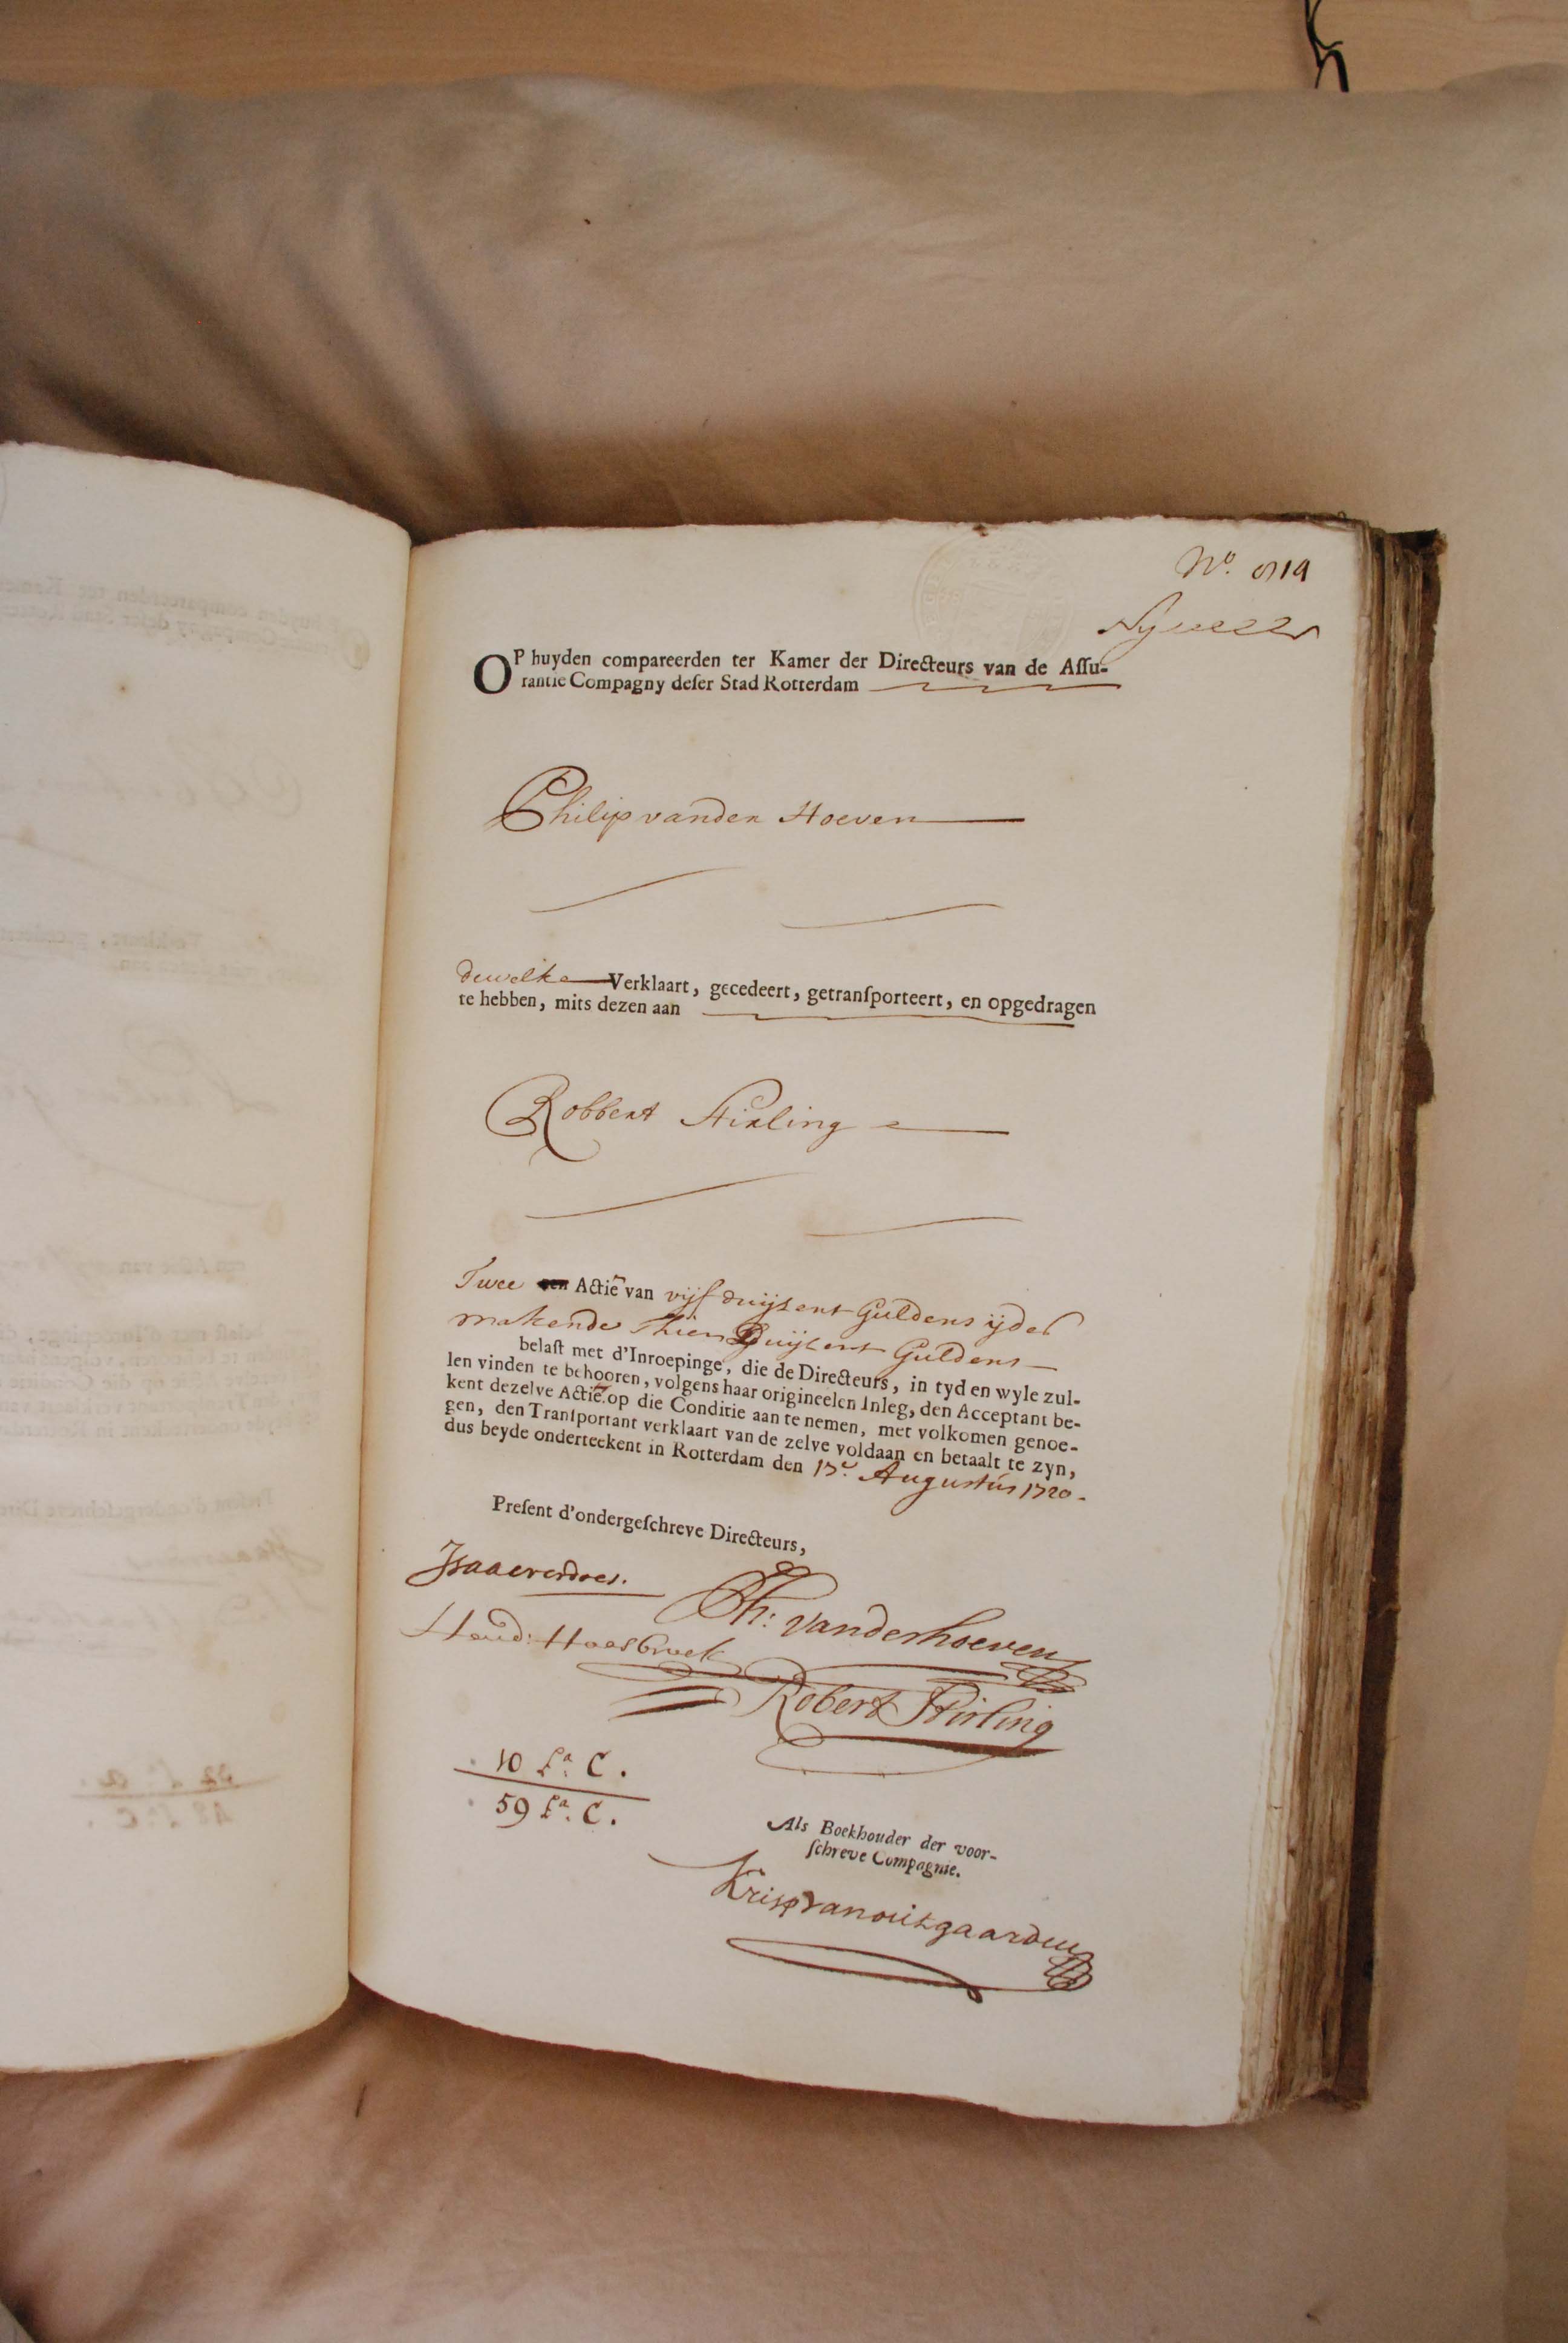 OP huyden compareerden ter Kamer der Directeurs van de Aſſu-
rantie Compagny deſer Stad Rotterdam
Philip vanden Hoeven
dewelke Verklaart, gecedeert, getranſporteert, en opgedragen
te hebben, mits dezen aan
Robbert Stirling
Twee een Actiën van vijf duijsent Guldens ijder
makende Thien Duijsent Guldens
belaſt met d'Inroepinge, die de Directeurs, in tyd en wyle zul-
len vinden te behooren, volgens haar origineelen Inleg, den Acceptant be-
kent dezelve Actiën op die Conditie aan te nemen, met volkomen genoe-
gen, den Tranſportant verklaart van de zelve voldaan en betaalt te zyn,
dus beyde onderteekent in Rotterdam den 17e. Augustús 1720.
Preſent d'ondergeſchreve Directeurs,
Ph: vanderhoeven
Robert Stirling
10 La. C.
59 La. C.
Als Boekhouder der voor-
ſchreve Compagnie.